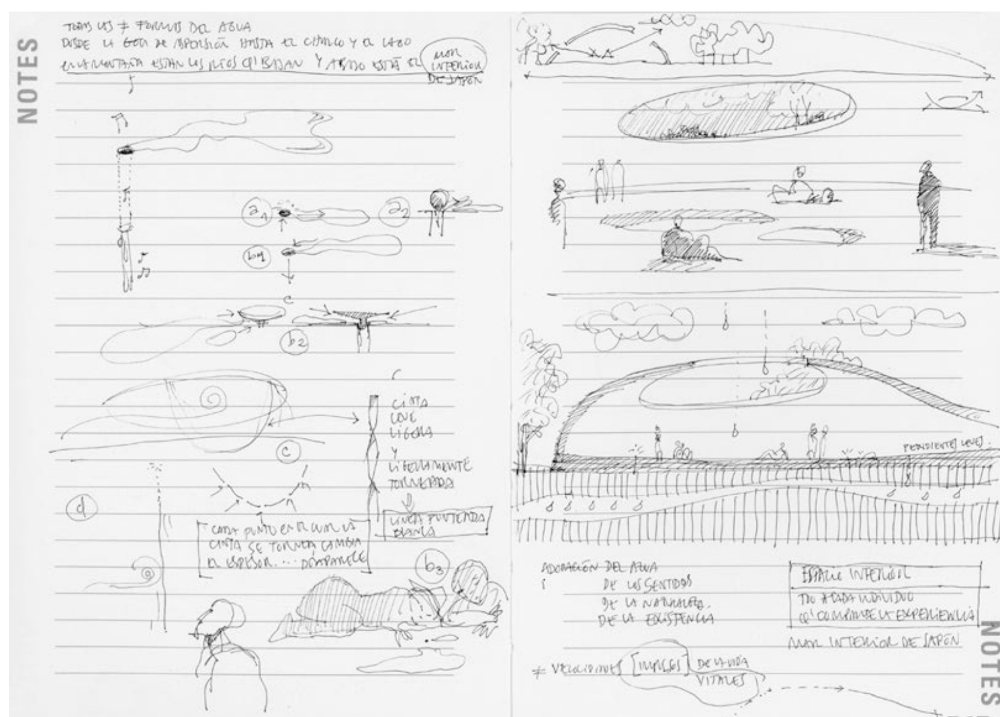 NOTES
TODAS LAS ≠ FORMAS DEL AGUA
DESDE LA GOTA DE ASPERSIÓN HASTA EL CHARCO Y EL LAGO
EN LA MONTAÑA ESTÁN LOS RÍOS Q' BAJAN Y ABAJO ESTÁ EL MAR
INTERIOR
DE JAPÓN
a1
a2
b1
c
b2
CINTA
QUE
LIGERA
Y
LIGERAMENTE
TORNEADA
c
LÍNEA PUNTEADA
BLANCA
d
CADA PUNTO EN EL CUAL LA
CINTA SE TORNEA CAMBIA
EL ESPESOR.... DESAPARECE
b3
PENDIENTES LEVES
ADORACIÓN DEL AGUA
DE LOS SENTIDOS
DE LA NATURALEZA
DE LA EXISTENCIA
ESPACIO INTERIOR
CADA INDIVIDUO
Q' COMPARTE LA EXPERIENCIA
MAR INTERIOR DE JAPÓN
≠ VELOCIDADES DE LA VIDA
VITALES
NOTES